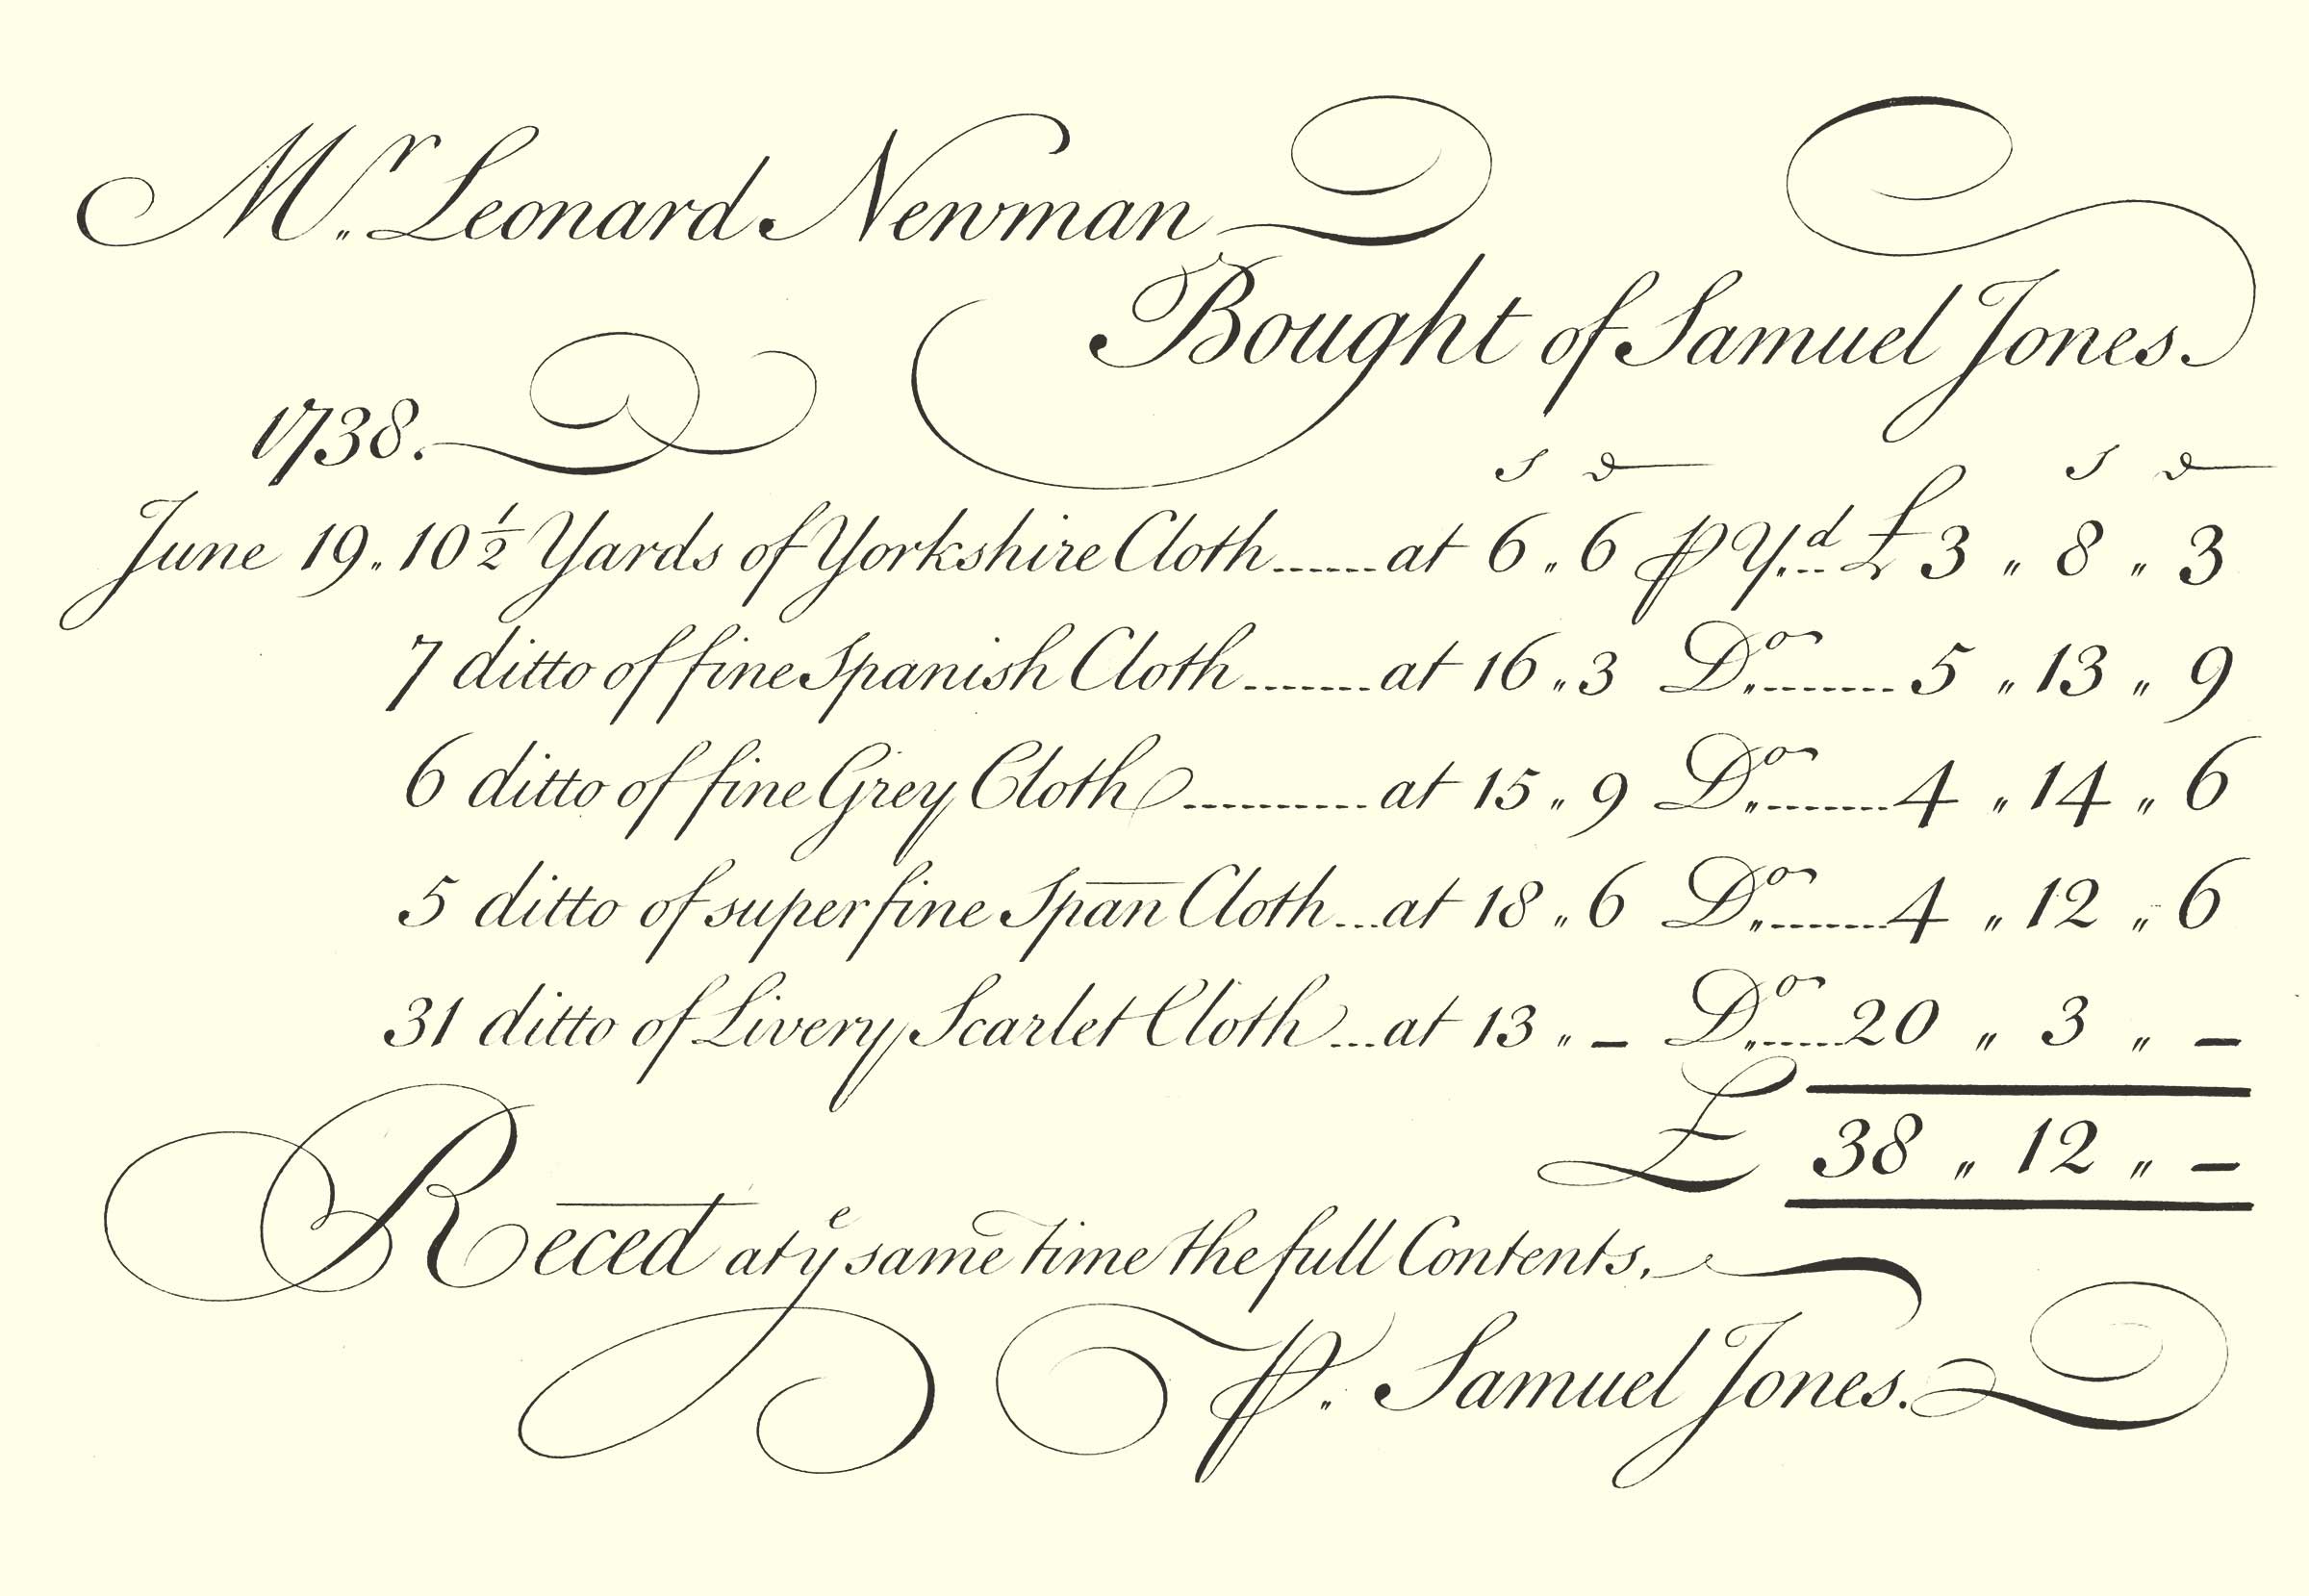 Mr. Leonard Newman
Bought of Samuel Jones.
1738.
s d s d
June 19. 10½ Yards of Yorkshire Cloth at 6 " 6 ⅌ Yd £ 3 " 8 " 3
7 ditto of fine Spanish Cloth at 16 " 3 Do 5 " 13 " 9
6 ditto of fine Grey Cloth at 15 " 9 Do 4 " 14 " 6
5 ditto of superfine Span̄ Cloth at 18 " 6 Do 4 " 12 " 6
31 ditto of Livery Scarlet Cloth at 13 " – Do 20 " 3 " –
£ 38 " 12 " –
Receed at ye same time the full Contents,
⅌. Samuel Jones.